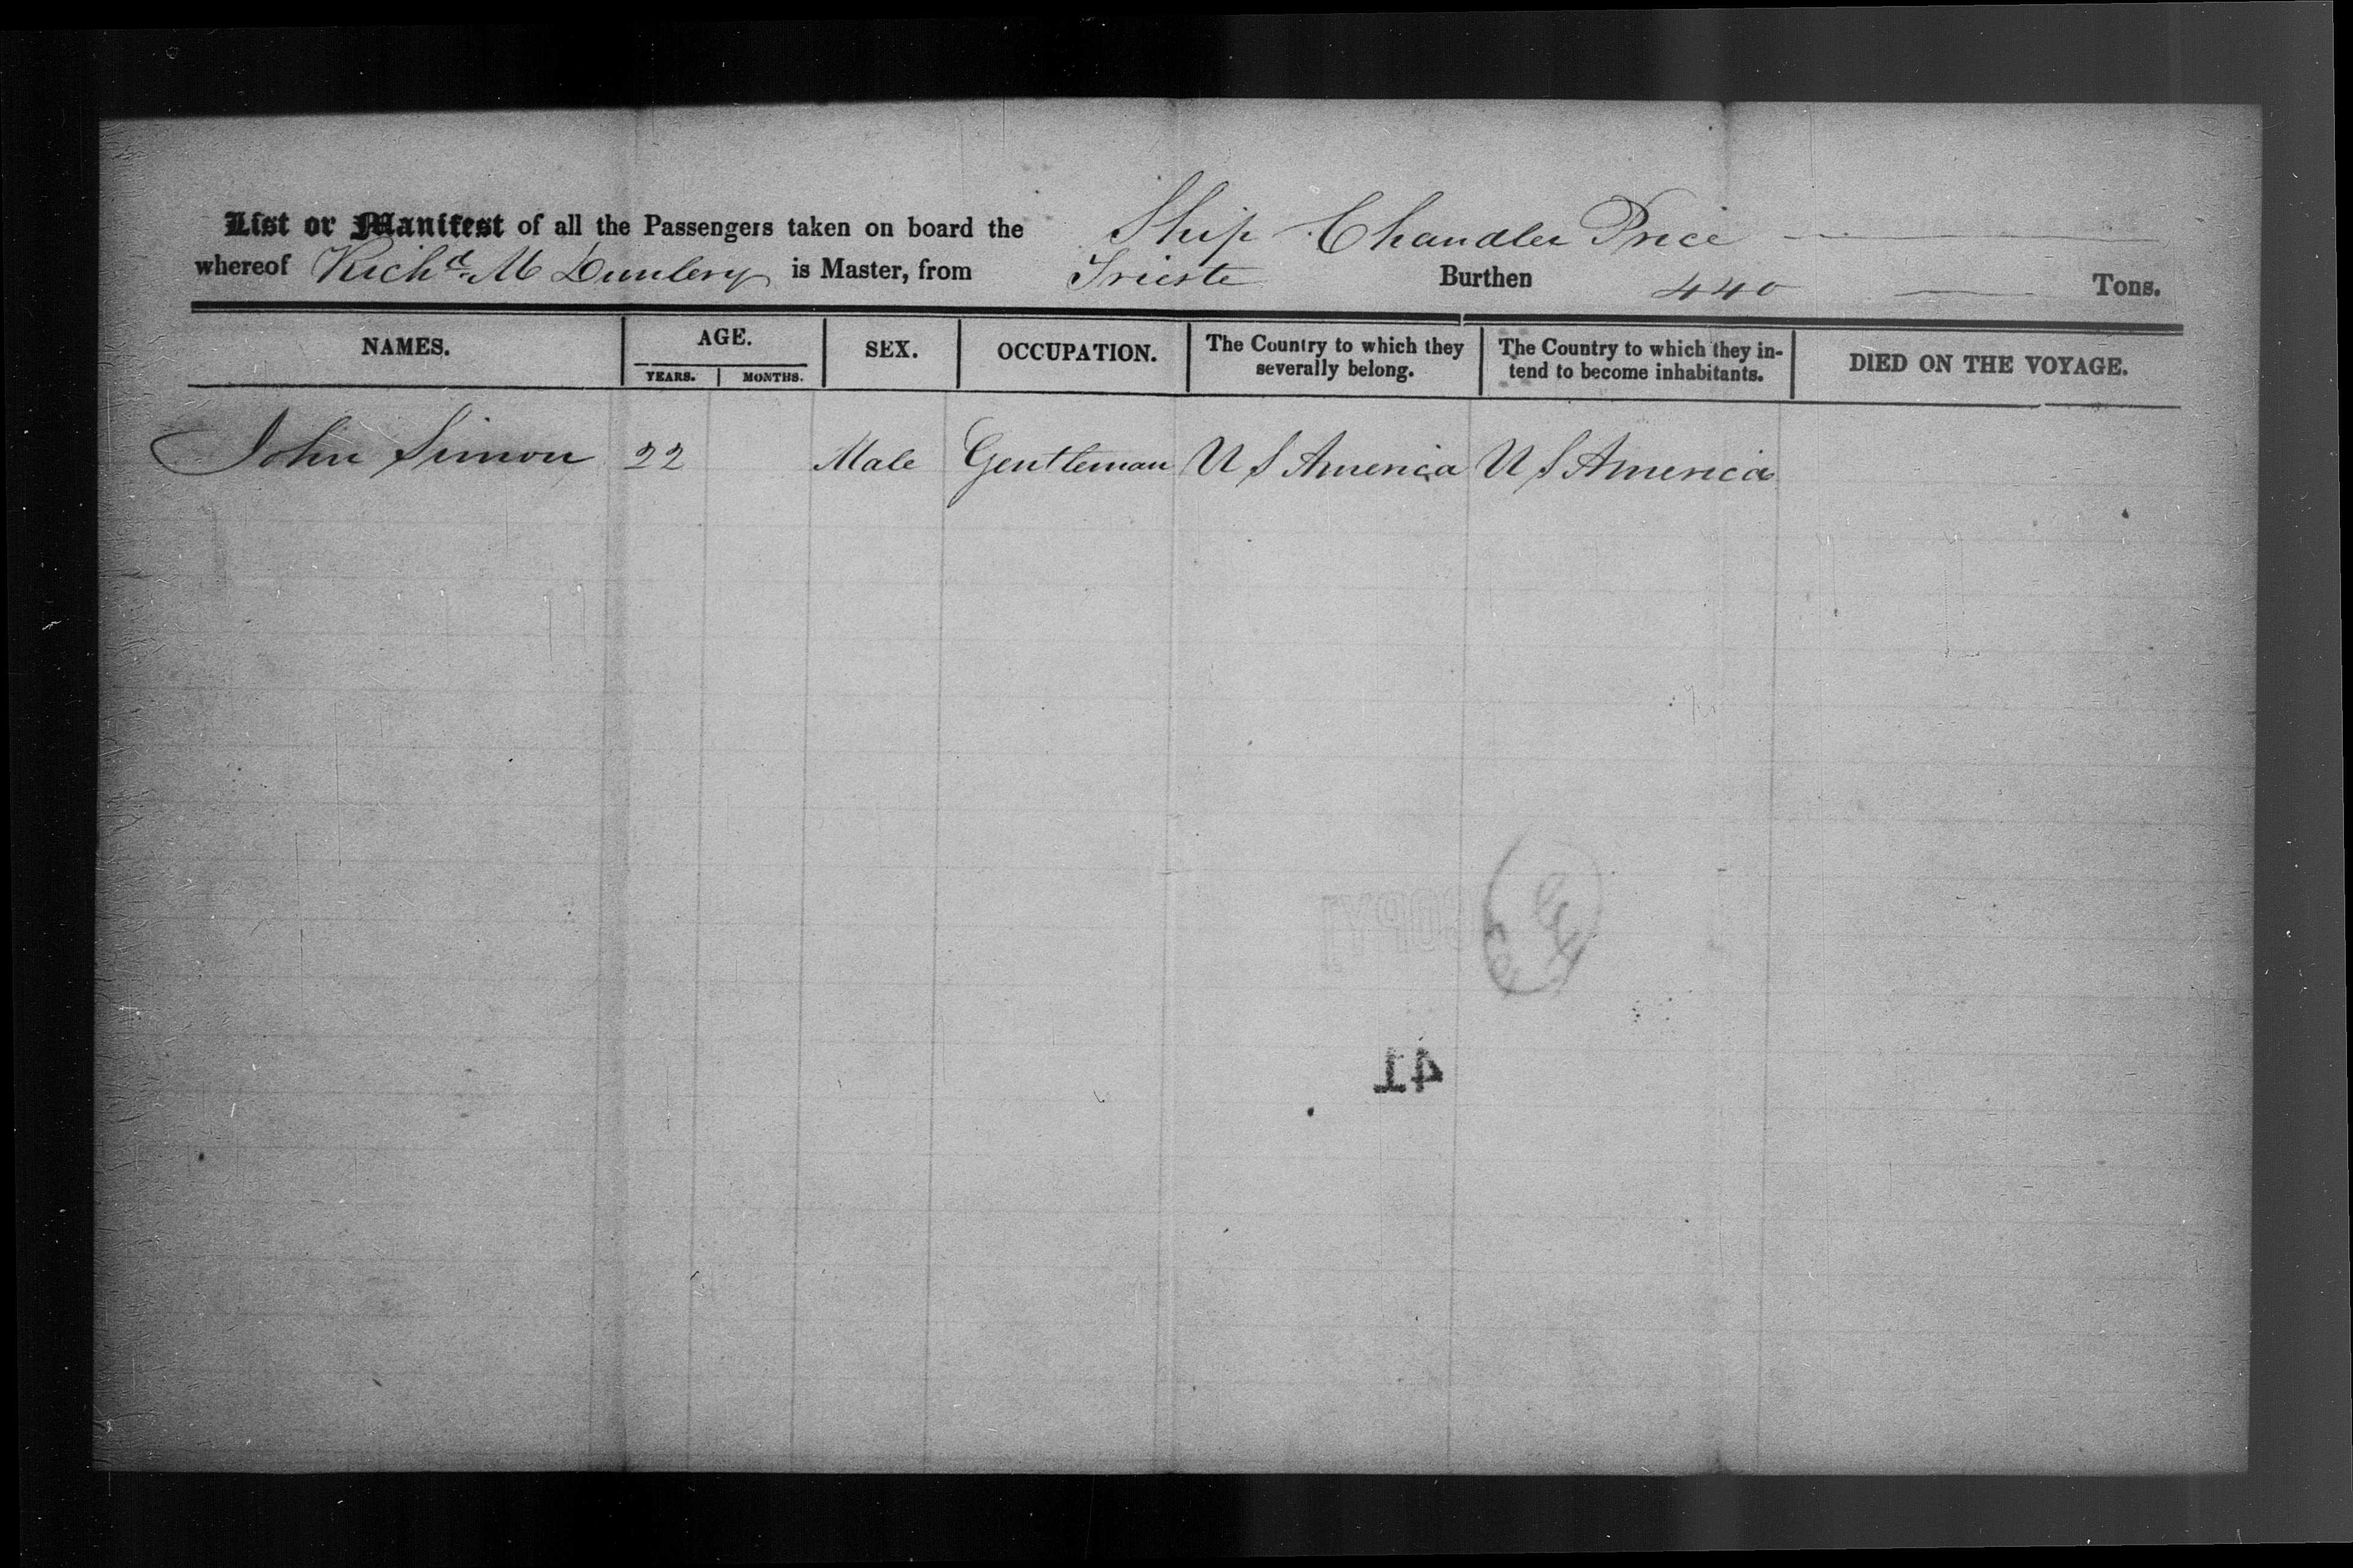 List or Manifest of all the Passengers taken on board the Ship Chandler Price
whereof Richd. M Dunlevy is Master, from Trieste Burthen 440 Tons.
NAMES. AGE. SEX. OCCUPATION. The Country to which they severally belong. The Country to which they in-tend to become inhabitants. DIED ON THE VOYAGE.
YEARS. MONTHS.
John Simon 22 Male Gentleman U S America U S America
COPY
41